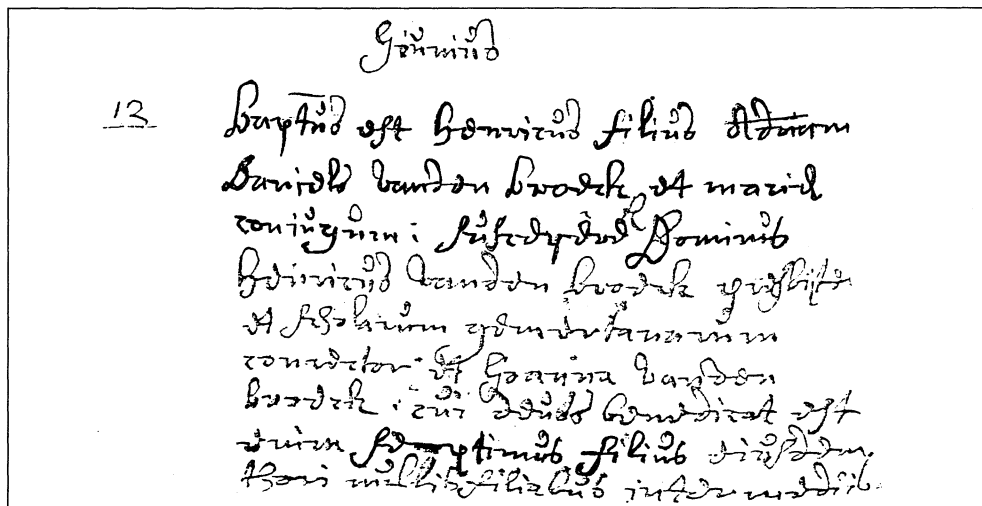 Geunius
13 Baptus est Henricus filius Adriani
Daniels vanden broeck et mariae
conjugum : susceperunt Dominus
Henricus vanden broeck presbiter
et scholarum gemertanarum
conrector et Joanna vanden
broeck : cui deus benedicat est
enim septimus filius eiusdem
thori nullis filiabus intermediis